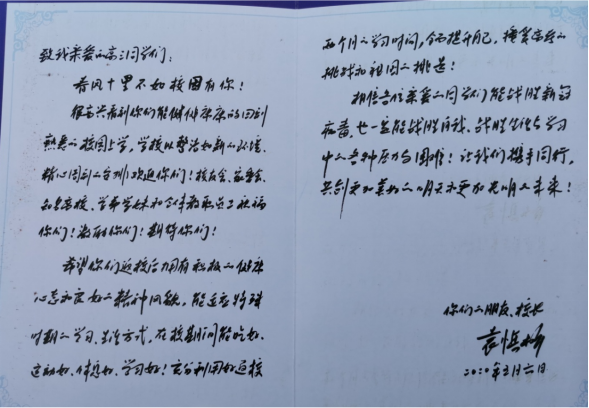 致我亲爱的高三同学们：
春风十里不如校园有你！
很高兴看到你们能健健康康的回到
熟悉的校园上学，学校以整洁如新的环境、
精心周到的台州欢迎你们！校友会、家委会、
知名高校、学弟学妹和全体教职员工祝福
你们！激励你们！期待你们！
希望你们返校后拥有积极的健康
心态和良好的精神风貌，能适应特殊
时期的学习、生活方式，在校期间能吃好、
运动好、休息好、学习好！充分利用好返校
两个月的学习时间，全面提升自己，接受高考的
挑战和祖国的挑选！
相信各位亲爱的同学们能战胜新冠
病毒，也一定能战胜自我、战胜生活与学习
中的各种压力与困难！让我们携手同行，
共创更加美好的明天和更加光明的未来！
你们的朋友、校长
二〇二〇年 月六日